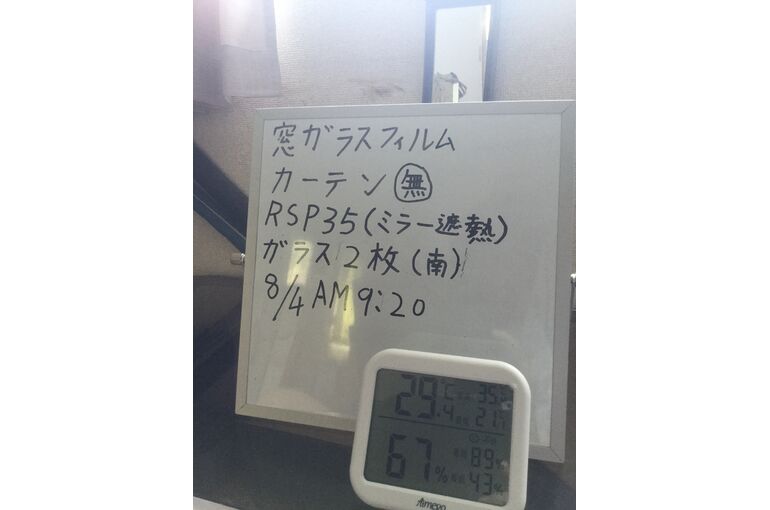 窓ガラスフィルム
カーテン 無
RSP35(ミラー遮熱)
ガラス2枚(南)
8/4 AM 9:20
29.4℃
67%
89%
43%